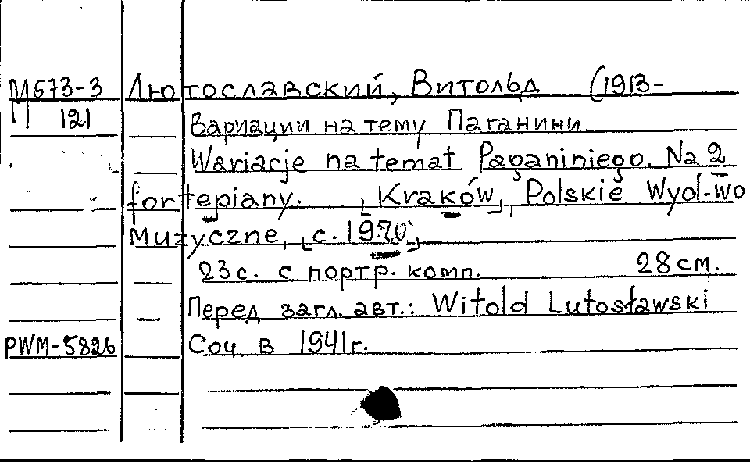 М573-3 Лютославский, Витольд (1913-
П 121 Вариации на тему Паганини
Wariacje na temat Paganiniego. Na 2
fortepiany. [Kraków], Polskie Wyd-wo
Muzyczne, [c.1970]
23с. с портр. комп. 28см.
Перед загл. авт.: Witold Lutosławski
PWM-5826 Соч. в 1941г.